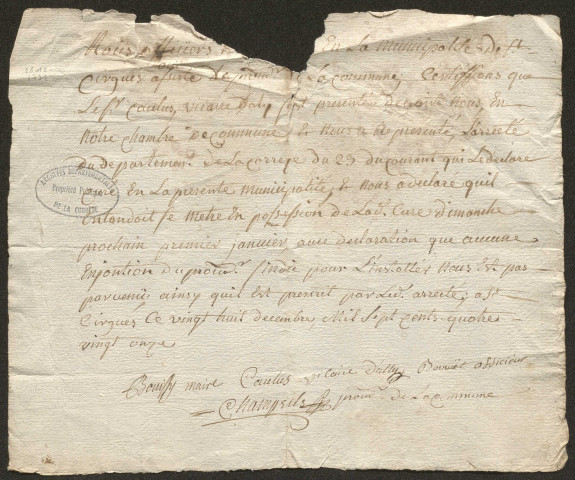 Nous officiers En La municipalité de St
Cirques assisté du procur. de la commune, Certiffions que
Le Sr Caulus, vicaire dally s'est presenté devant nous, En
Notre Chambre De commune, & Nous a Représenté L'arreté
du departement De La Correze du 23 du Courant qui Le declare
Curé En La presente municipalité, & Nous a declaré quil
Entandoit se metre En possession de Lad. Cure dimanche
prochain premier janvier, avec declaration que aucune
Enjontion du procur. sindic pour L'installer Nous Est pas
parvenüe ainsy quil Est prescrit par Led. arreté, a St
Cirgues Ce vingt huit decembre Mil Sept Cents quatre
vingt onze
Bouissy maire Caulus vicaire dally officier
Champeils procur. de La commune
ARCHIVES DÉPARTEMENTALES
Propriété Publique
DE LA CORRÈZE